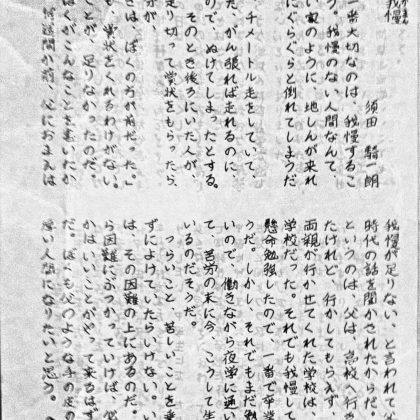 我慢
須田 騎一朗
一番大切なのは、我慢するこ
う。我慢のない人間なんて、
い家のように、地しんが来れ
にぐらぐらと倒れてしまうだ
チメートル走をしていて、
た、がん張れば走れるのに、
ので、ぬけてしまったとする。
そのとき後ろにいた人が、
走り切って賞状をもらったら、
分が、
さは、ぼくの方が前だった。」
も、賞状をくれるわけがない。
ことが、足りなかったのだ。
ぼくがこんなことを書いたか
間か前、父におまえは
我慢が足りない、と言われて、
時代の話を聞かされたからだ。
というのは、父は、高校へ行
たけれど、行かしてもらえず
両親が行かせてくれた学校は
学校だった。それでも我慢し
懸命勉強したので、一番で卒業
うだ。しかし、それでもまだ
いので、働きながら夜学に通い
て、苦労の末に今、こうして生
いるのだそうだ。
つらいこと、苦しいことを乗
ずによけていたらいけない。い
は、その困難の上にあるのだ。
ら困難にぶつかっていけば、必
かはいいことがやって来るはず
だ。ぼくも父のような手の皮の
厚い人間になりたいと思う。